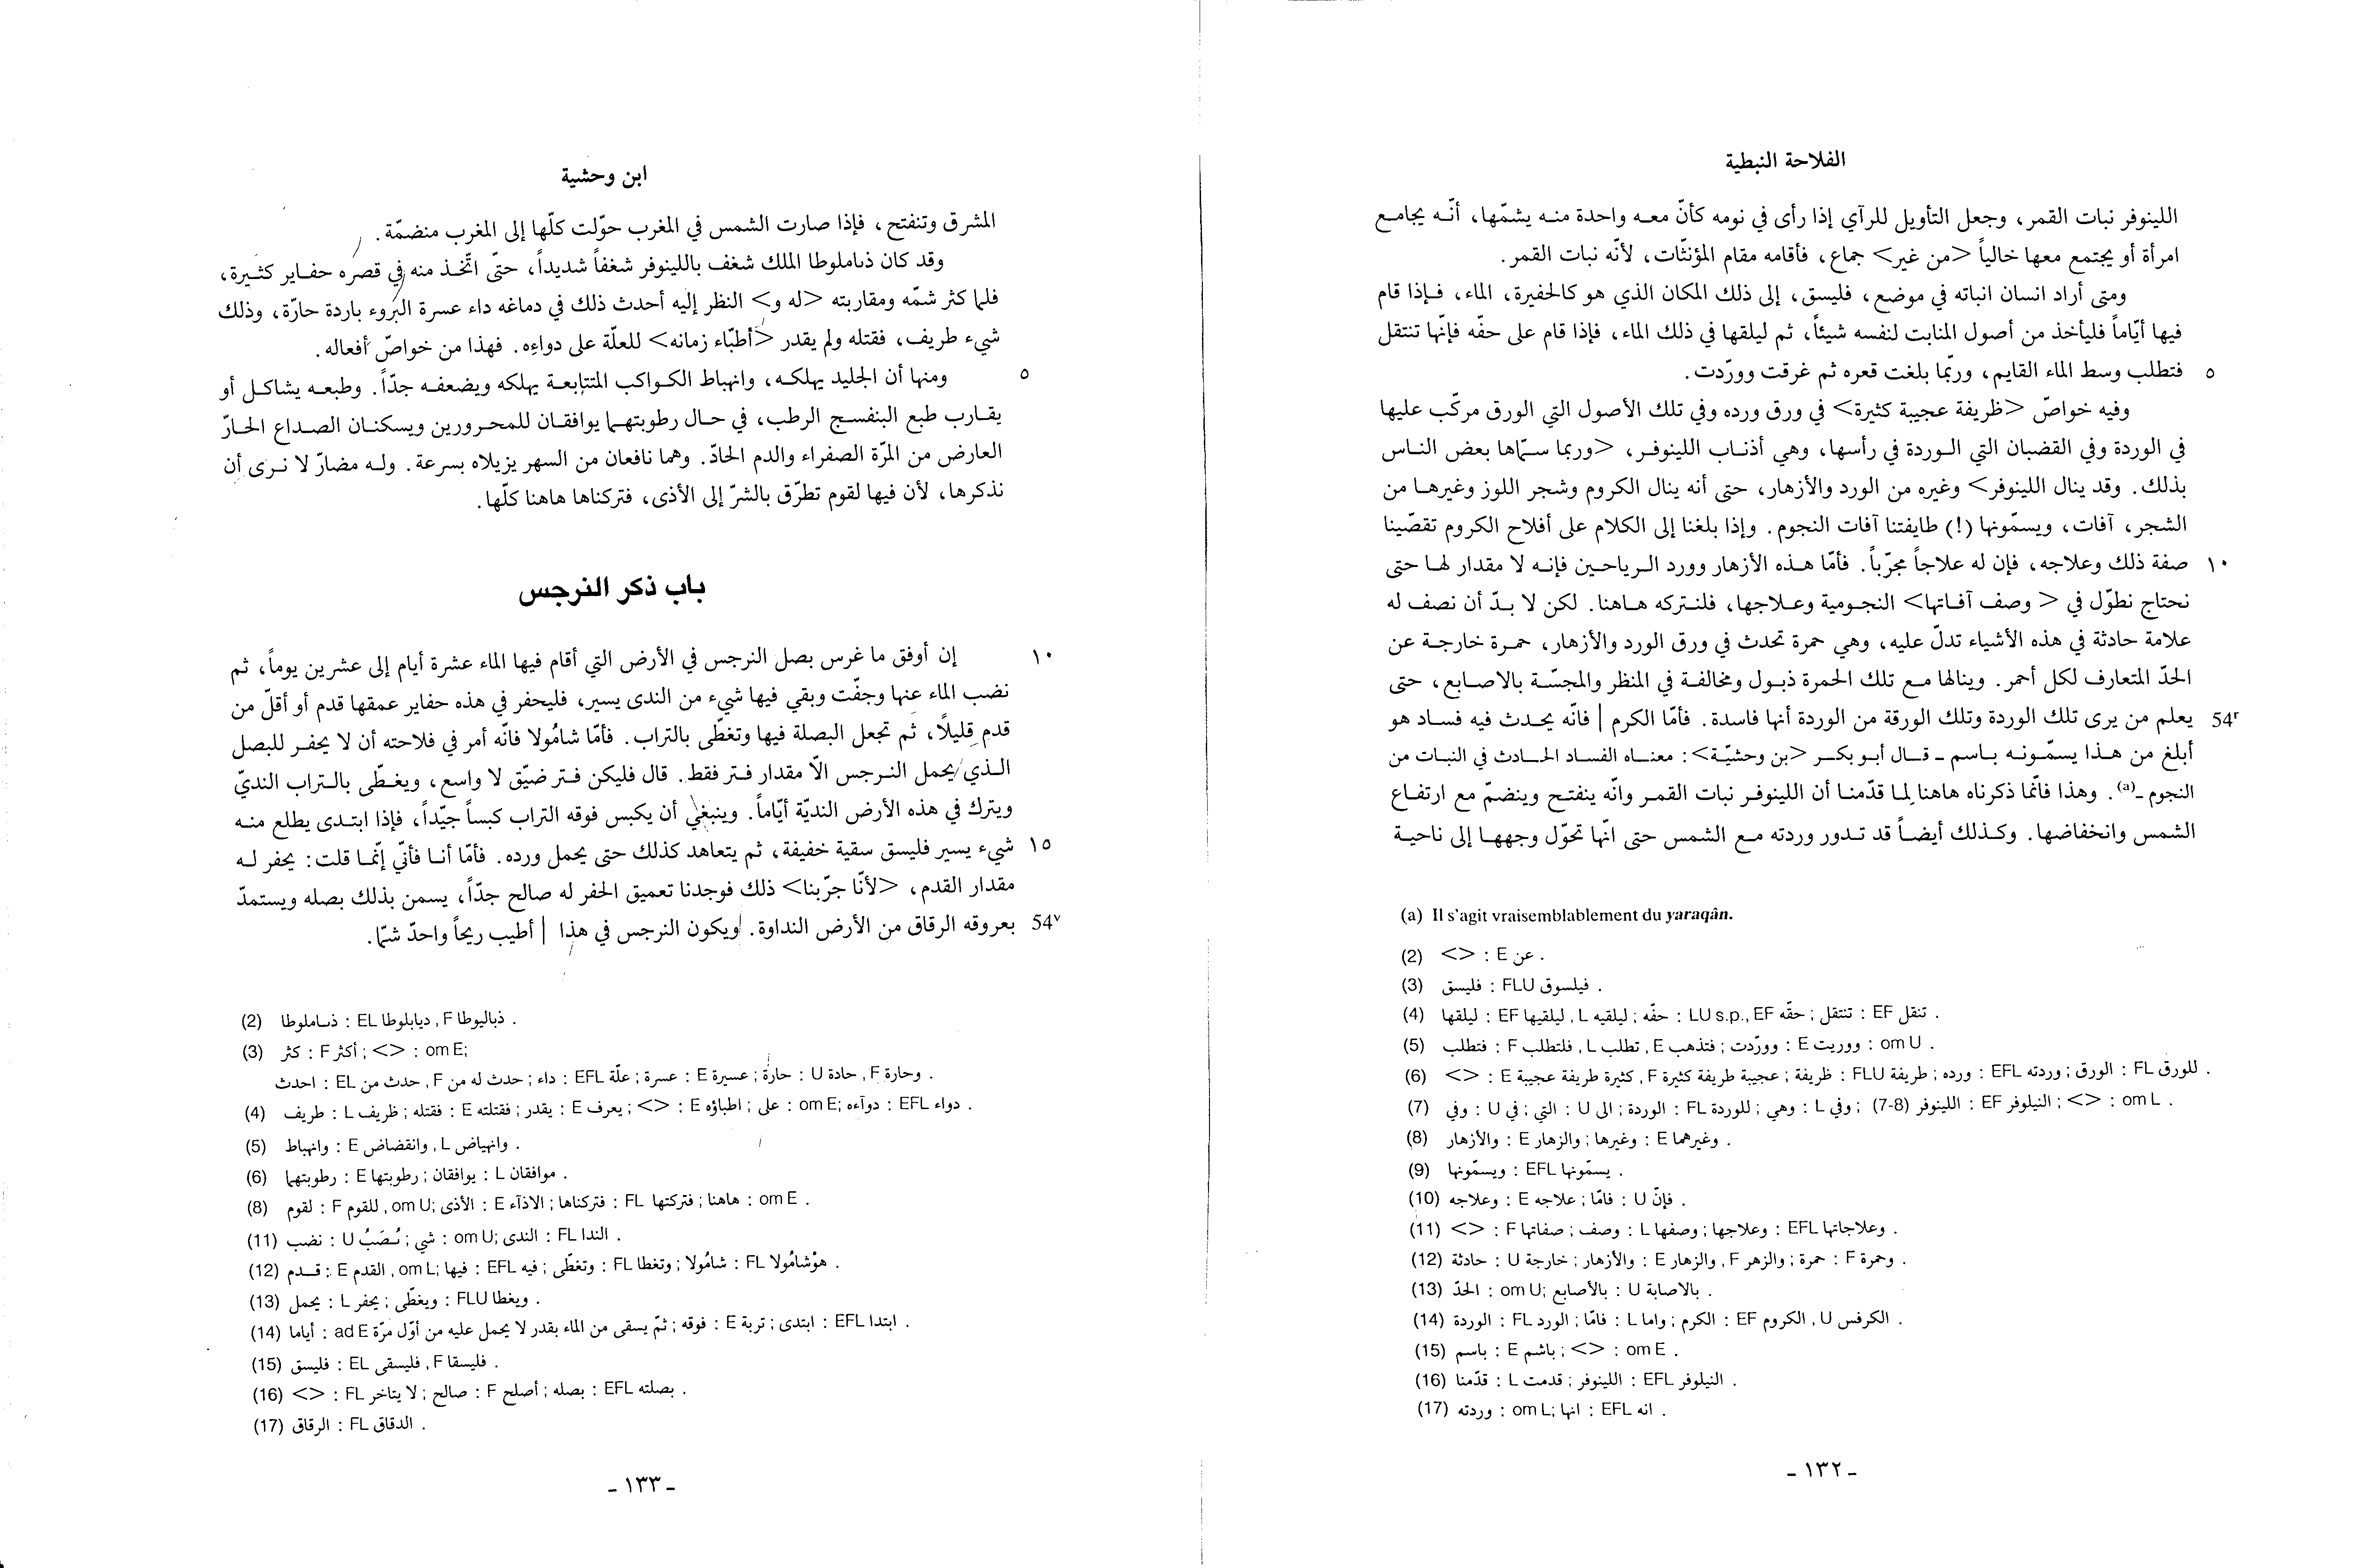 الفلاحة النبطية
اللينوفر نبات القمر، وجعل التأويل للرآي إذا رأى في نومه كأنّ معه واحدة منه يشمّها، أنّه يجامع
امرأة أو يجتمع معها خالياً <من غير> جماع، فأقامه مقام المؤنثّات، لأنّه نبات القمر.
ومتى أراد انسان انباته في موضع، فليسق، إلى ذلك المكان الذي هو كالحفيرة، الماء، فإذا قام
فيها أيّاماً فليأخذ من أصول المنابت لنفسه شيئاً، ثم ليلقها في ذلك الماء، فإذا قام على حفّه فإنّها تنتقل
٥ فتطلب وسط الماء القايم، وربّما بلغت قعره ثم غرقت وورّدت.
وفيه خواصّ <ظريفة عجيبة كثيرة> في ورق ورده وفي تلك الأصول التي الورق مركّب عليها
في الوردة وفي القضبان التي الوردة في رأسها، وهي أذناب اللينوفر، <وربما سمّاها بعض الناس
بذلك. وقد ينال اللينوفر> وغيره من الورد والأزهار، حتى أنه ينال الكروم وشجر اللوز وغيرها من
الشجر، آفات، ويسمّونها (!) طايفتنا آفات النجوم. وإذا بلغنا إلى الكلام على أفلاح الكروم تقصّينا
١٠ صفة ذلك وعلاجه، فإن له علاجاً مجرّباً. فأمّا هذه الأزهار وورد الرياحين فإنه لا مقدار لها حتى
نحتاج نطوّل في < وصف آفاتها> النجومية وعلاجها، فلنتركه هاهنا. لكن لا بدّ أن نصف له
علامة حادثة في هذه الأشياء تدلّ عليه، وهي حمرة تحدث في ورق الورد والأزهار، حمرة خارجة عن
الحدّ المتعارف لكل أحمر. وينالها مع تلك الحمرة ذبول ومخالفة في المنظر والمجسّة بالاصابع، حتى
54r يعلم من يرى تلك الوردة وتلك الورقة من الوردة أنها فاسدة. فأمّا الكرم | فانّه يحدث فيه فساد هو
أبلغ من هذا يسمّونه باسم ـ قال أبو بكر <بن وحشيّة>: معناه الفساد الحادث في النبات من
النجوم ـ(a). وهذا فانّما ذكرناه هاهنا لما قدّمنا أن اللينوفر نبات القمر وانّه ينفتح وينضمّ مع ارتفاع
الشمس وانخفاضها. وكذلك أيضاً قد تدور وردته مع الشمس حتى انّها تحوّل وجهها إلى ناحية
(a) Il s'agit vraisemblablement du yaraqân.
(2) <> : E عن .
(3) فليسق : FLU فيلسوق .
(4) ليلقها : EF ليلقيها, L ليلقيه ; حفّه : LU s.p., EF حقّه ; تنتقل : EF تنقل .
(5) فتطلب : F فلتطلب, L تطلب, E فتذهب ; وورّدت : E ووريت : om U .
(6) <> : E كثيرة طريفة عجيبة, F عجيبة طريفة كثيرة ; ظريفة : FLU طريفة ; ورده : EFL وردته ; الورق : FL للورق .
(7) وفي : U في ; التي : U الى ; الوردة : FL للوردة ; وهي : L وفي ; (7-8) اللينوفر : EF النيلوفر ; <> : om L .
(8) والأزهار : E والزهار ; وغيرها : E وغيرهما .
(9) ويسمّونها : EFL يسمّونها .
(10) وعلاجه : E علاجه ; فامّا : U فإنّ .
(11) <> : F صفاتها ; وصف : L وصفها ; وعلاجها : EFL وعلاجاتها .
(12) حادثة : U خارجة ; والأزهار : E والزهار, F والزهر ; حمرة : F وحمرة .
(13) الحدّ : om U; بالأصابع : U بالاصابة .
(14) الوردة : FL الورد ; فامّا : L واما ; الكرم : EF الكروم, U الكرفس .
(15) باسم : E باشم ; <> : om E .
(16) قدّمنا : L قدمت ; اللينوفر : EFL النيلوفر .
(17) وردته : om L; انها : EFL انه .
ـ ١٣٢ ـ
ابن وحشية
المشرق وتنفتح، فإذا صارت الشمس في المغرب حوّلت كلّها إلى المغرب منضمّة.
وقد كان ذىاملوطا الملك شغف باللينوفر شغفاً شديداً، حتّى اتّخذ منه في قصره حفاير كثيرة،
فلما كثر شمّه ومقاربته <له و> النظر إليه أحدث ذلك في دماغه داء عسرة البروء باردة حارّة، وذلك
شيء طريف، فقتله ولم يقدر <أطبّاء زمانه> للعلّة على دواءه. فهذا من خواصّ أفعاله.
٥ ومنها أن الجليد يهلكه، وانهباط الكواكب المتتابعة يهلكه ويضعفه جدّاً. وطبعه يشاكل أو
يقارب طبع البنفسج الرطب، في حال رطوبتهما يوافقان للمحرورين ويسكنان الصداع الحارّ
العارض من المرّة الصفراء والدم الحادّ. وهما نافعان من السهر يزيلاه بسرعة. وله مضارّ لا نرى أن
نذكرها، لأن فيها لقوم تطرّق بالشرّ إلى الأذى، فتركناها هاهنا كلّها.
باب ذكر النرجس
١٠ إن أوفق ما غرس بصل النرجس في الأرض التي أقام فيها الماء عشرة أيام إلى عشرين يوماً، ثم
نضب الماء عنها وجفّت وبقي فيها شيء من الندى يسير، فليحفر في هذه حفاير عمقها قدم أو أقلّ من
قدم قليلًا، ثم تجعل البصلة فيها وتغطّى بالتراب. فأمّا شامُولا فانّه أمر في فلاحته أن لا يحفر للبصل
الذي يحمل النرجس الّا مقدار فتر فقط. قال فليكن فتر ضيّق لا واسع، ويغطّى بالتراب النديّ
ويترك في هذه الأرض النديّة أيّاماً. وينبغي أن يكبس فوقه التراب كبساً جيّداً، فإذا ابتدى يطلع منه
١٥ شيء يسير فليسق سقية خفيفة، ثم يتعاهد كذلك حتى يحمل ورده. فأمّا أنا فأنّي إنّما قلت: يحفر له
مقدار القدم، <لأنّا جرّبنا> ذلك فوجدنا تعميق الحفر له صالح جدّاً، يسمن بذلك بصله ويستمدّ
54v بعروقه الرقاق من الأرض النداوة. ويكون النرجس في هذا | أطيب ريحاً واحدّ شمّا.
(2) ذىاملوطا : EL ديابلوطا, F ذباليوطا .
(3) كثر : F أكثر ; <> : om E;
احدث : EL حدث من, F حدث له من ; داء : EFL علّة ; عسرة : E عسيرة ; حارّة : U حادة, F وحارة .
(4) طريف : L ظريف ; فقتله : E فقتلته ; يقدر : E يعرف ; <> : E اطباؤه ; على : om E; دوآءه : EFL دواء .
(5) وانهباط : E وانقضاض, L وانهياض .
(6) رطوبتهما : E رطوبتها ; يوافقان : L موافقان .
(8) لقوم : F للقوم, om U; الأذى : E الاذآء ; فتركناها : FL فتركتها ; هاهنا : om E .
(11) نضب : U نُصَبُ ; شي : om U; الندى : FL الندا .
(12) قدم : E القدم, om L; فيها : EFL فيه ; وتغطّى : FL وتغطا ; شامُولا : FL هوْشامُولا .
(13) يحمل : L يحفر ; ويغطّى : FLU ويغطا .
(14) أياما : ad E ثمّ يسقى من الماء بقدر لا يحمل عليه من أوّل مرّة ; فوقه : E تربة ; ابتدى : EFL ابتدا .
(15) فليسق : EL فليسقى, F فليسقا .
(16) <> : FL لا يتاخر ; صالح : F أصلح ; بصله : EFL بصلته .
(17) الرقاق : FL الدقاق .
ـ ١٣٣ ـ